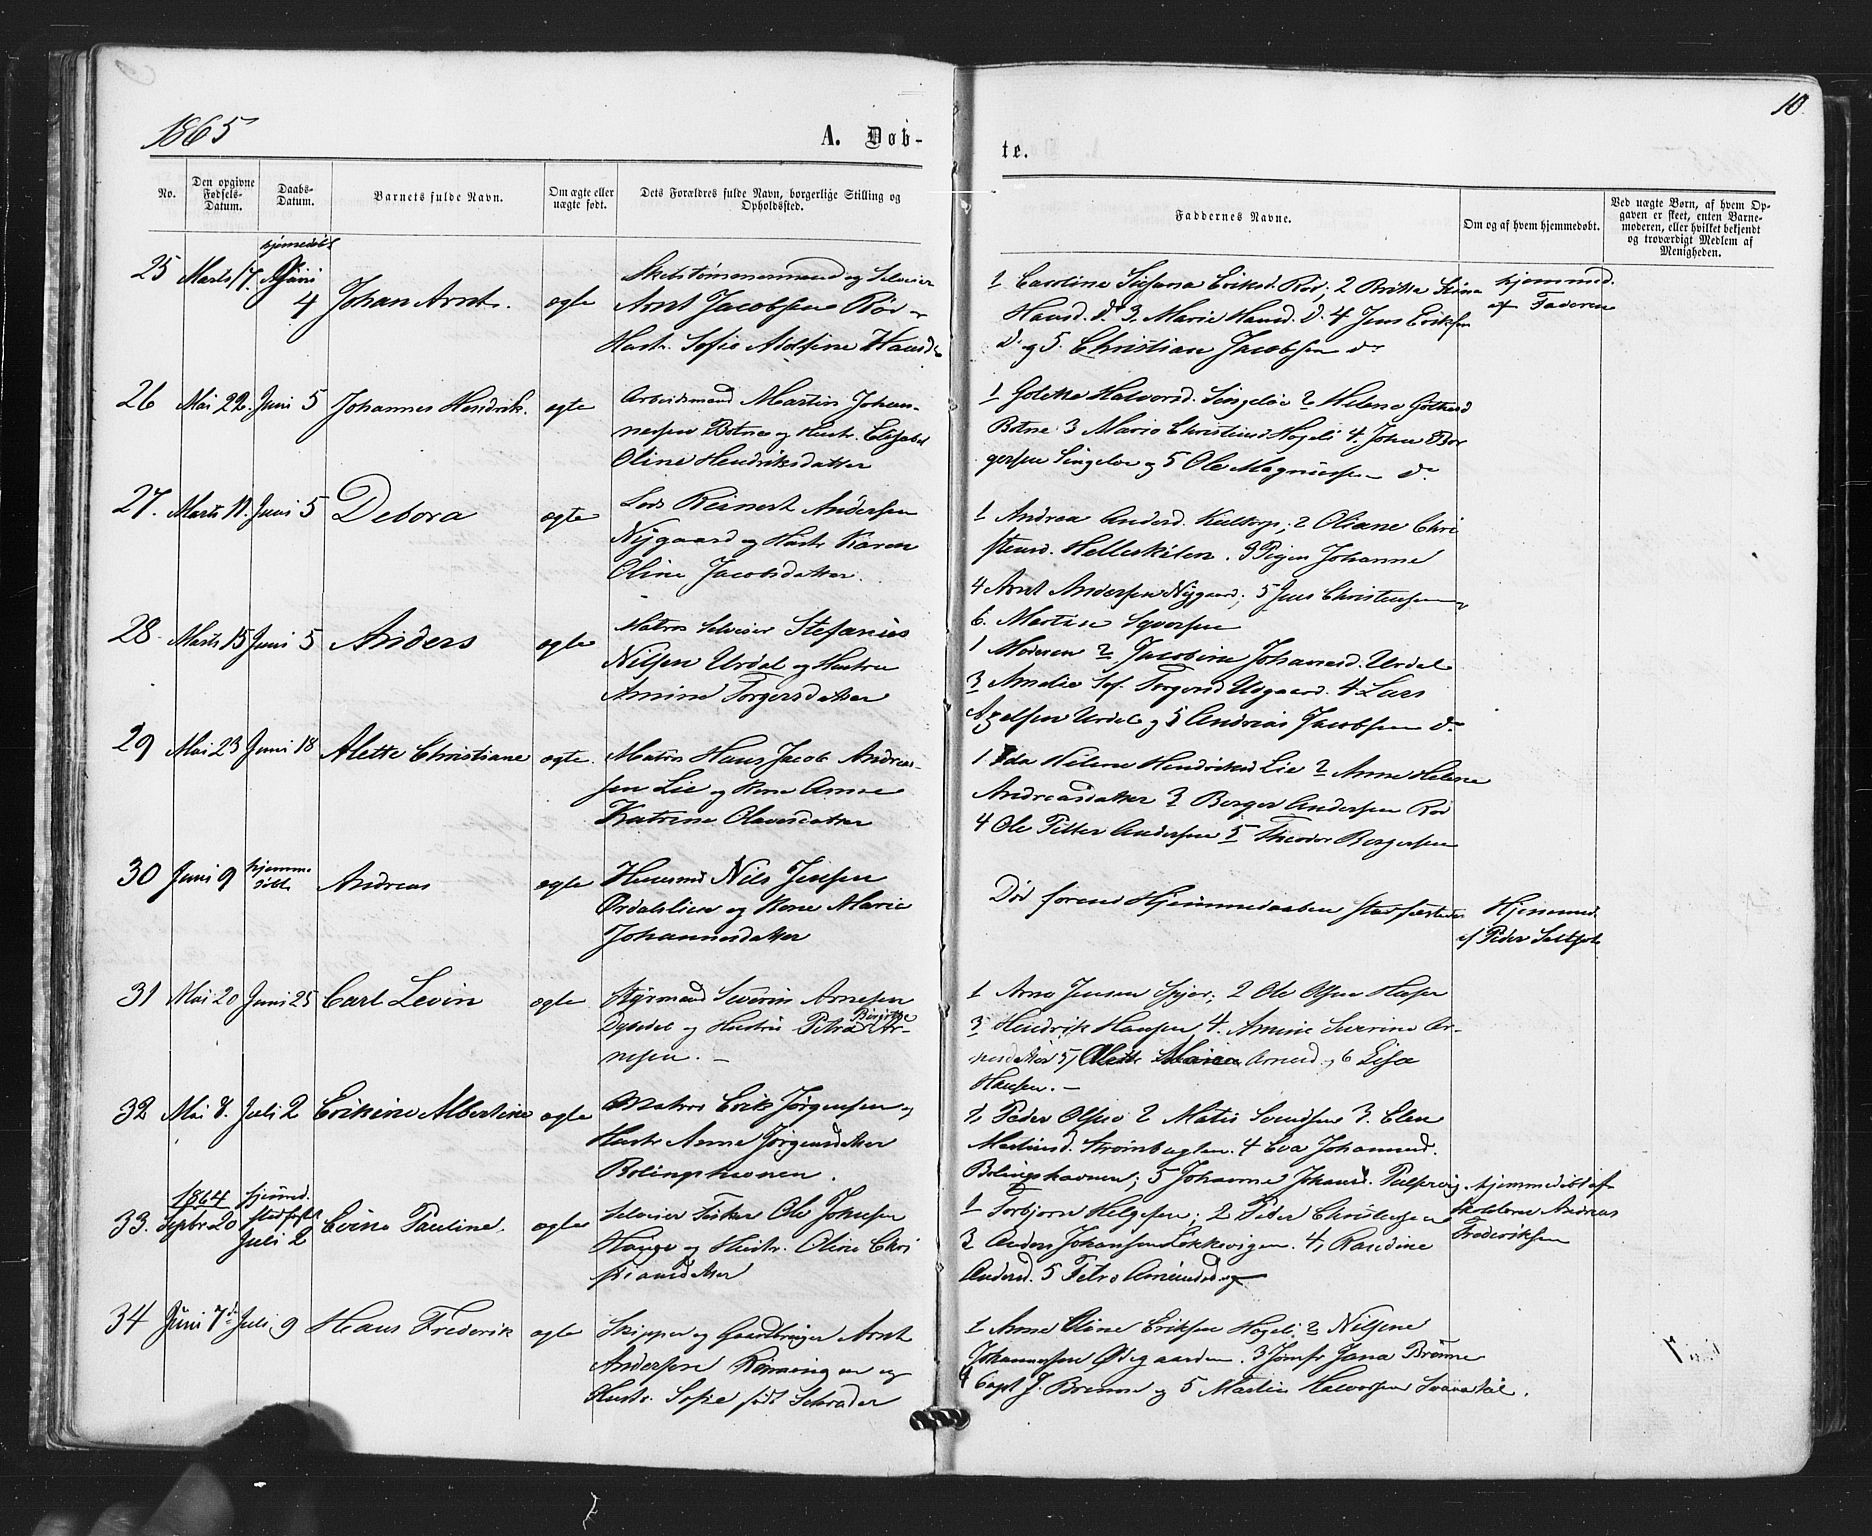 1865
A. Døb-
te.
10.
No.
Den opgivne Fødsels-Datum.
Daabs-Datum.
Barnets fulde Navn.
Om ægte eller uægte født.
Dets Forældres fulde Navn, borgerlige Stilling og Opholdssted.
Faddernes Navne.
Om og af hvem hjemmedøbt.
Ved uægte Børn, af hvem Op-
gaven er skeet, enten Barne-
moderen, eller hvilket bekjendt
og troværdigt Medlem af
Menigheden.
25 Marts 17. hjemmedøbt 4 Johan Arnt. ægte
Skibstømmermand og Selveier
Arnt Jacobsen Rød
Hustr. Sofie Hansd
Hansd. 3. Marie Hansd. 4 Jens Eriksen
og 5. Christian Jacobsen
hjemmed.
af Faderen
26 Mai 22. Juni 5 Johannes Hendrik. ægte
Arbeidsmand Martin Johan-
nessen Botne og Hustr. Elisabet
Oline Hendriksdatter
1 Golette Halvorsd. Singeløe 2 Helene
Botne 3 Marie 4. John Bor
gersen Singeløe og 5 Ole Magnussen
27. Marts 11. Juni 5 Debora ægte
Lods Reinert Andersen
Nygaard og Hustr Karen
Oline Jacobsdatter.
1 Andrea Andersd. 2 Oliane Chri
stensd. Helleskilen. 3 Pigen Johanne
4 Arnt Andersen Nygaard; 5 Jens Christensen
6. Martin
28. Marts 15 Juni 5 Anders ægte
Matros Selveier Stefanus
Nilsen Urdal og Hustru
Amine Torgersdatter
1 Moderen 2 Jacobine Johannesd. Urdal
3 Amalie Sof. Torgersd 4 Lars
Axelsen Urdal og 5 Andreas Jacobsen
29 Mai 23 Juni 18 Alette Christiane ægte.
Matros Hans Jacob Andreas-
sen Lie og Kone Anne
Katrine Olavesdatter
1 Ida Helene Lie 2 Anne Helene
Andreasdatter 3 Borger Andersen Rød
4 Ole Petter Andersen 5 Theodor Borgersen
30 Juni 9 hjemme
døbt Andreas ægte
Huusmd Nils Jensen
Ørdalslien og Kone Marie
Johannesdatter
Død forend Hjemmedaaben stadfæstedes
Hjemmed.
af Peder
31 Mai 20 Juni 25 Carl Levin ægte
Styrmand Severin Arnesen
Dybdal og Hustru Petra Birgitte Ar-
nesen. -
1 Arne Jensen 2 Ole Olsen
3 Hendrik Hansen 4. Amine Severine Ar-
nesdatter 5, Alette Arnesd., 6 Elise
Hansen. -
32 Mai 8. Juli 2 Erikine Albertine ægte
Matros Erik Jørgensen og
Hustr Anne Jørgensdatter
Bolingshavnen.
1, Peder Olsen 2 Matis 3. Elen
Martinsd. Strømbugten. 4 Eva Johannesd.
Bolingshavnen; 5 Johanne
33. 1864 Septbr. 20 hjemmed.
stadfæst
Juli 2 Evine Pauline. ægte
Selveier Fisker Ole Johnsen
Hauge og Hustr. Oline Chri
stiansdatter
1 Torbjørn Helgesen; 2 Peter Christensen
3 Anders Johansen Løkkevigen. 4, Rasedine
Andersd. 5 Petra
hjemmedøbt af
Skolelærer Andreas
Frederiksen
34 Juni 7de Juli 9 Hans Frederik ægte
Skipper og Gaardbruger Arnt
Andersen Rønningen og
Hustr. Sofie født Schrøder
1 Anne Oline Eriksen Hogeli. 2 Nilsine
Johannessen Ødegaarden. 3 Jomfr Jana Brønne
4 Capt J. Brønne og 5 Martin Halvorsen